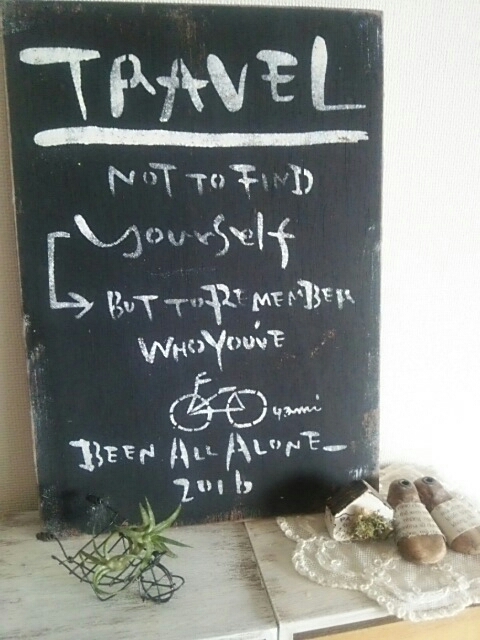 TRAVEL
NOT TO FIND
yourself
BUT TO REMEMBER
WHO YOU'VE
yami
BEEN ALL ALONE
2016